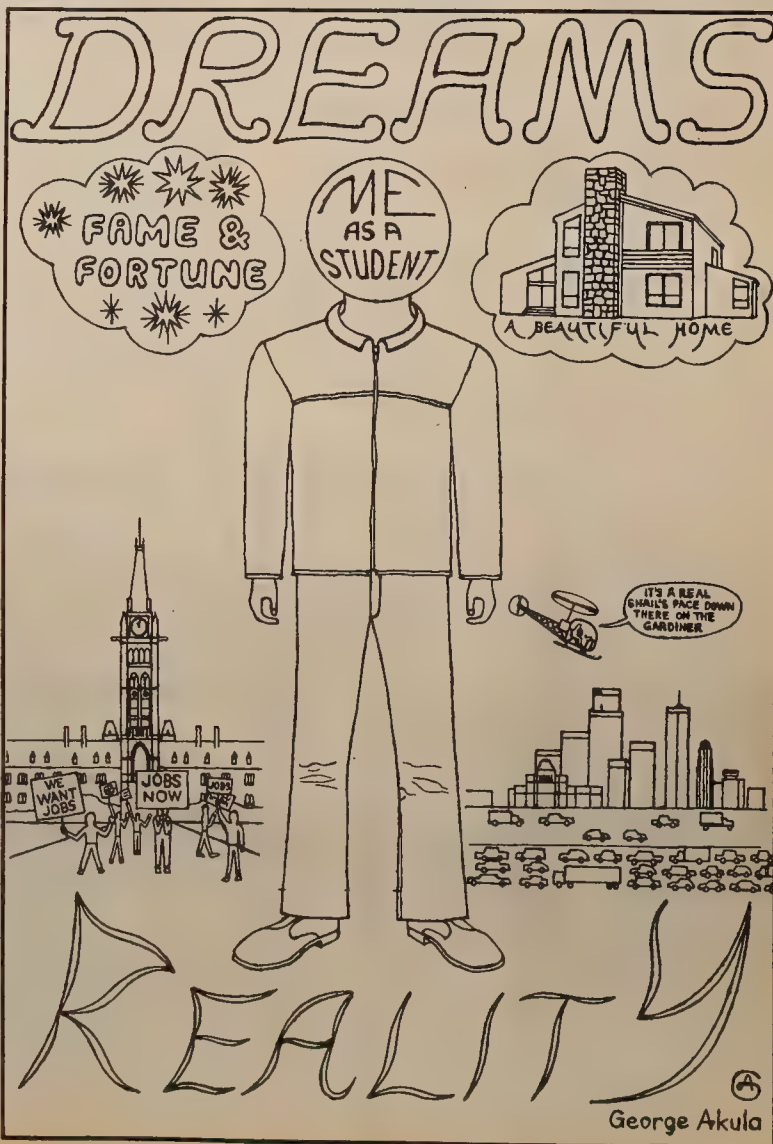 DREAMS
FAME &
FORTUNE
ME
AS A
STUDENT
A BEAUTIFUL HOME
IT'S A REAL
SNAIL'S PACE DOWN
THERE ON THE
GARDINER
WE
WANT
JOBS
JOBS
NOW
JOBS
REALITY
GA
George Akula